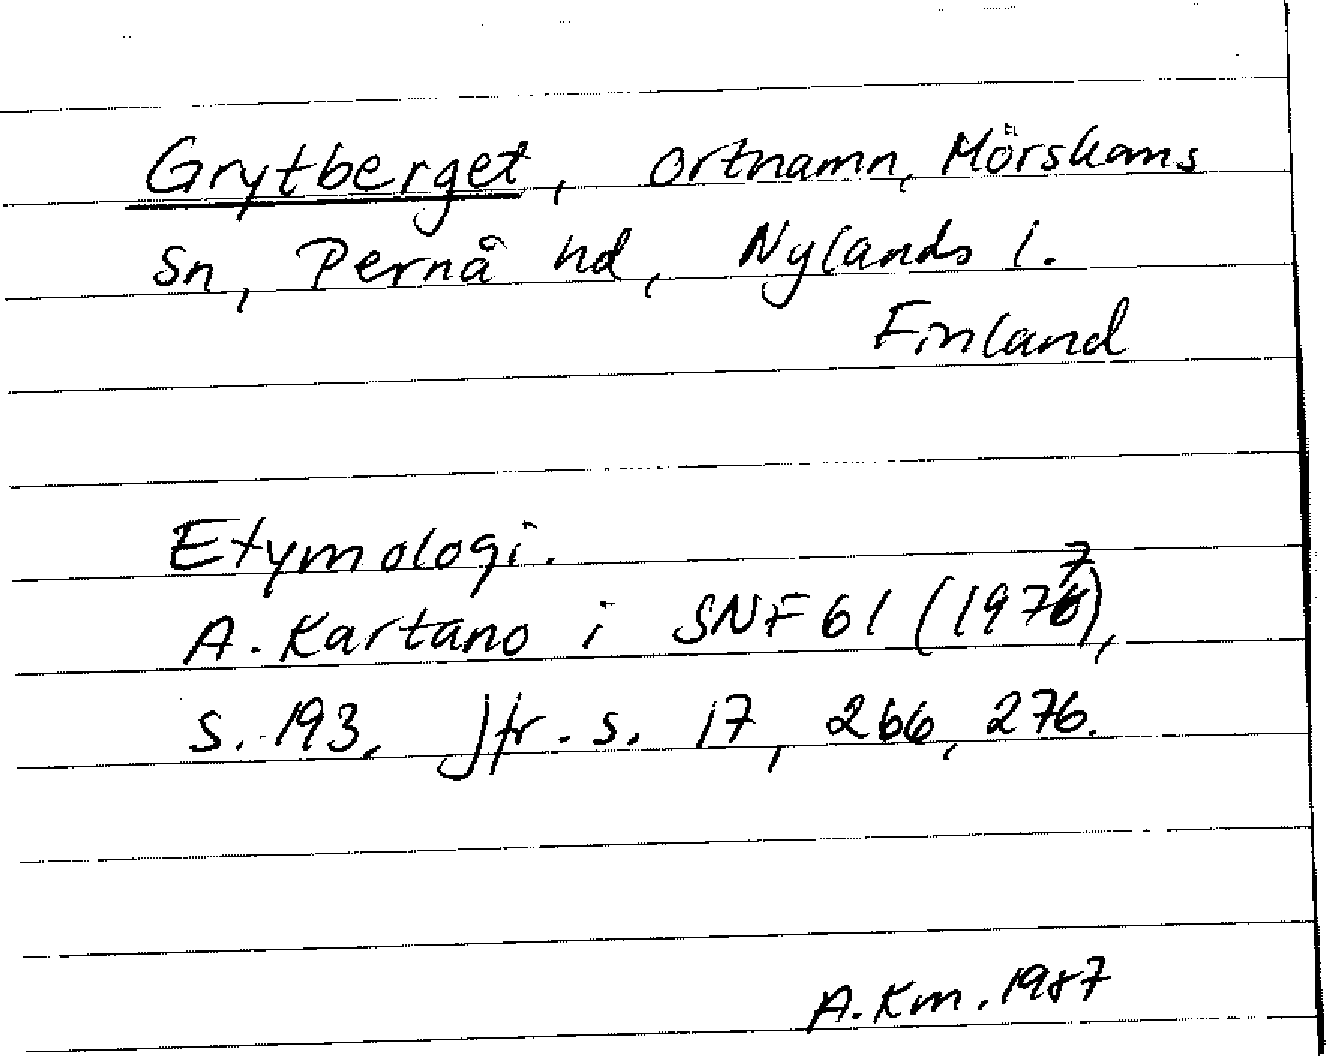 Grytberget, ortnamn, Mörskoms
sn, Pernå hd, Nylands l.
Finland
Etymologi.
A. Kartano i SNF 61 (1977),
s. 193. Jfr. s. 17, 266, 276.
A. Km. 1987